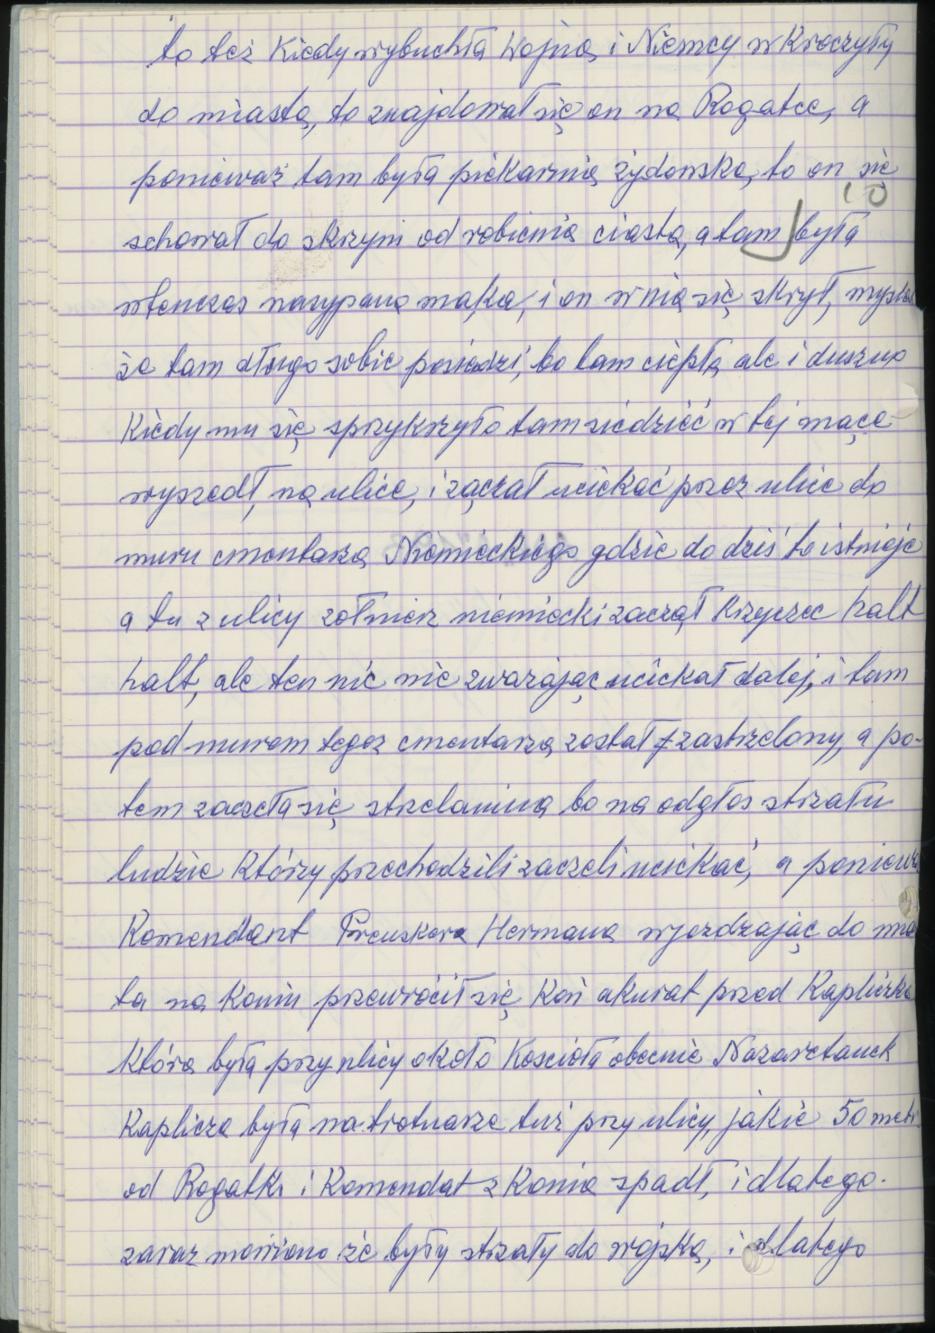 to też Kiedy wybuchła Wojna, i Niemcy wKroczyły
do miasta, to znajdował się on na Rogatce, a
ponieważ tam była piekarnia żydowska, to on się
10
schował do skrzyni od robienia ciasta, a tam była
wtenczas nasypana mąka, i on w nią się skrył, myślał
że tam długo sobie posiedzi, bo tam ciepło ale i duszno
Kiedy mu się sprzykrzyło tam siedzieć w tej mące
wyszedł, na ulice, i zaczał uciekać przez ulice do
muru cmentarza Niemieckiego gdzie do dziś to istnieje
a tu z ulicy żołnierz niemiecki zaczął Krzyczec halt
halt, ale ten nic nie zwarzając uciekał dalej, i tam
pod murem tegoż cmentarza został zastrzelony, a po-
tem zaczeła się strzelanina bo na odgłos strzału
ludzie Którzy przechodzili zaczeli uciekać, a ponieważ
Komendant Hermana wjezdzając do mia
ta na Koniu przewrócił się Koń akurat przed Kapliczką
Która była przy ulicy około Kościoła obecnie Nazaretanek
Kaplicza była na trotuarze tuż przy ulicy, jakie 50 metr
od Rogatki i Komendat z Konia spadł, i dlatego.
zaraz mówiono że były strzały do wojska, i dlatego